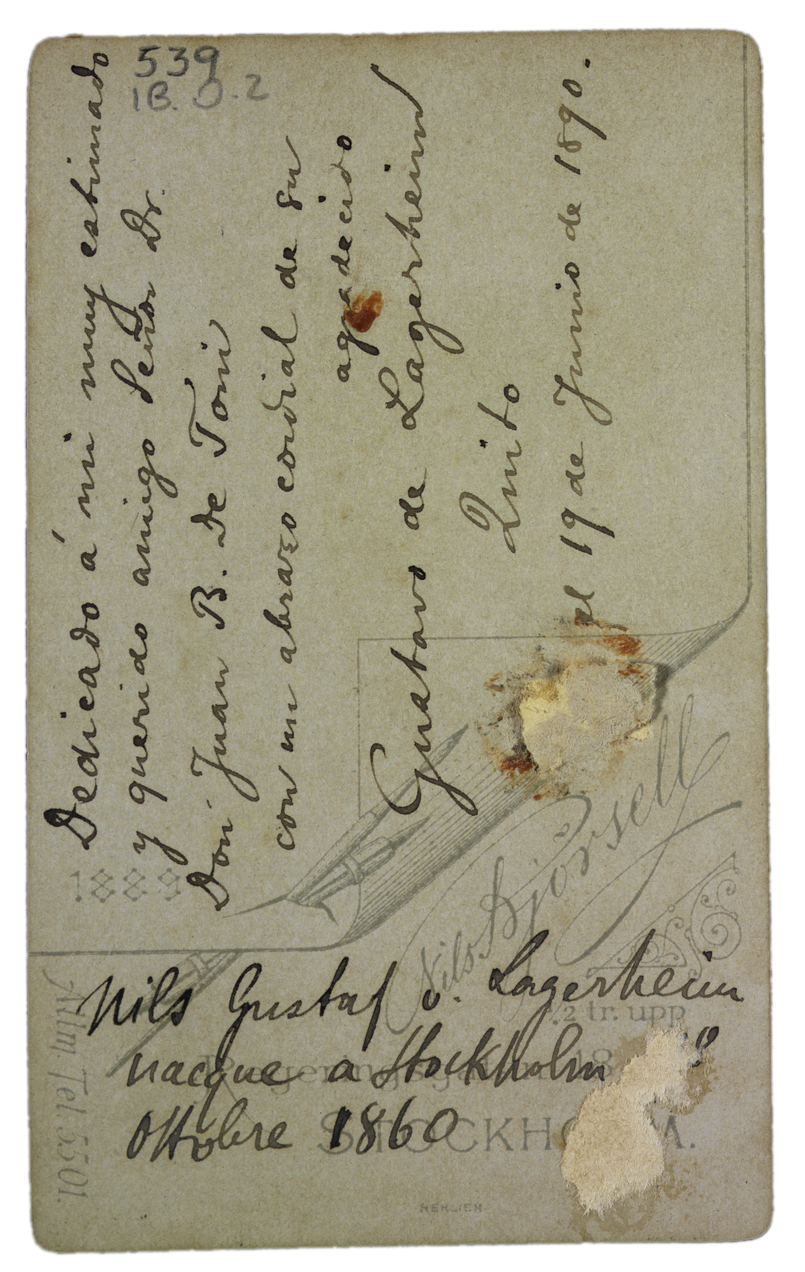 539
IB. O. 2
Dedicado á mi muy estimado
y querido amigo Señor Dr.
Don Juan B. De Toni
con un abrazo cordial de su
agradecido
Gustavo de Lagerheim
Quito
el 19 de Junio de 1890.
1889
Nils Björsell
½ tr. upp
Regeringsgatan 18
STOCKHOLM.
Allm. Tel. 5501.
Nils Gustaf v. Lagerheim
nacque a Stockholm
Ottobre 1860